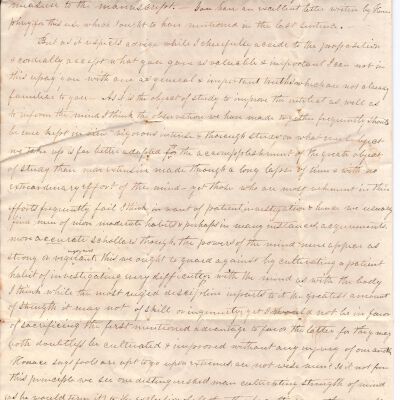 measure to the manuscript. You have an excellent letter written by
for this use which I ought to have mentioned in the last sentence.
But as it respects advice while I cheerfully accede to the proposition
& cordially accept what you gave as valuable & important I can not in
this repay you with one as general & important truths which are not already
familiar to you. As it is the object of study to improve the intellect as well as
to inform the mind I think the observation we have made together frequently should
be ever kept in view vigorous intense & thorough study on what ever subject
we take up is far better adapted to the accomplishment of the great object
of study than more extensive made through a long lapse of time & with no
extraordinary effort of the mind yet those who are most vehement in their
efforts frequently fail I think in want of patient investigation & hence we usually
find men of more moderate habits & perhaps in many instances acquirements
more accurate scholars though the powers of the mind never appear as
strong or vigorous this we ought to guard against by cultivating a patient
habit of investigating every difficulty with the mind as with the body
I think while the most rigid discipline imparts to it the greatest amount
of strength it may not of skill or ingenuity yet I would not be in favor
of sacrificing the first mentioned advantage to favor the latter for they may
both doubtless be cultivated & improved without any injury of
Horace says fools are apt to go upon extremes
this principle we see our distinguished men cultivating strength of mind
as he would term it to the exclusion of